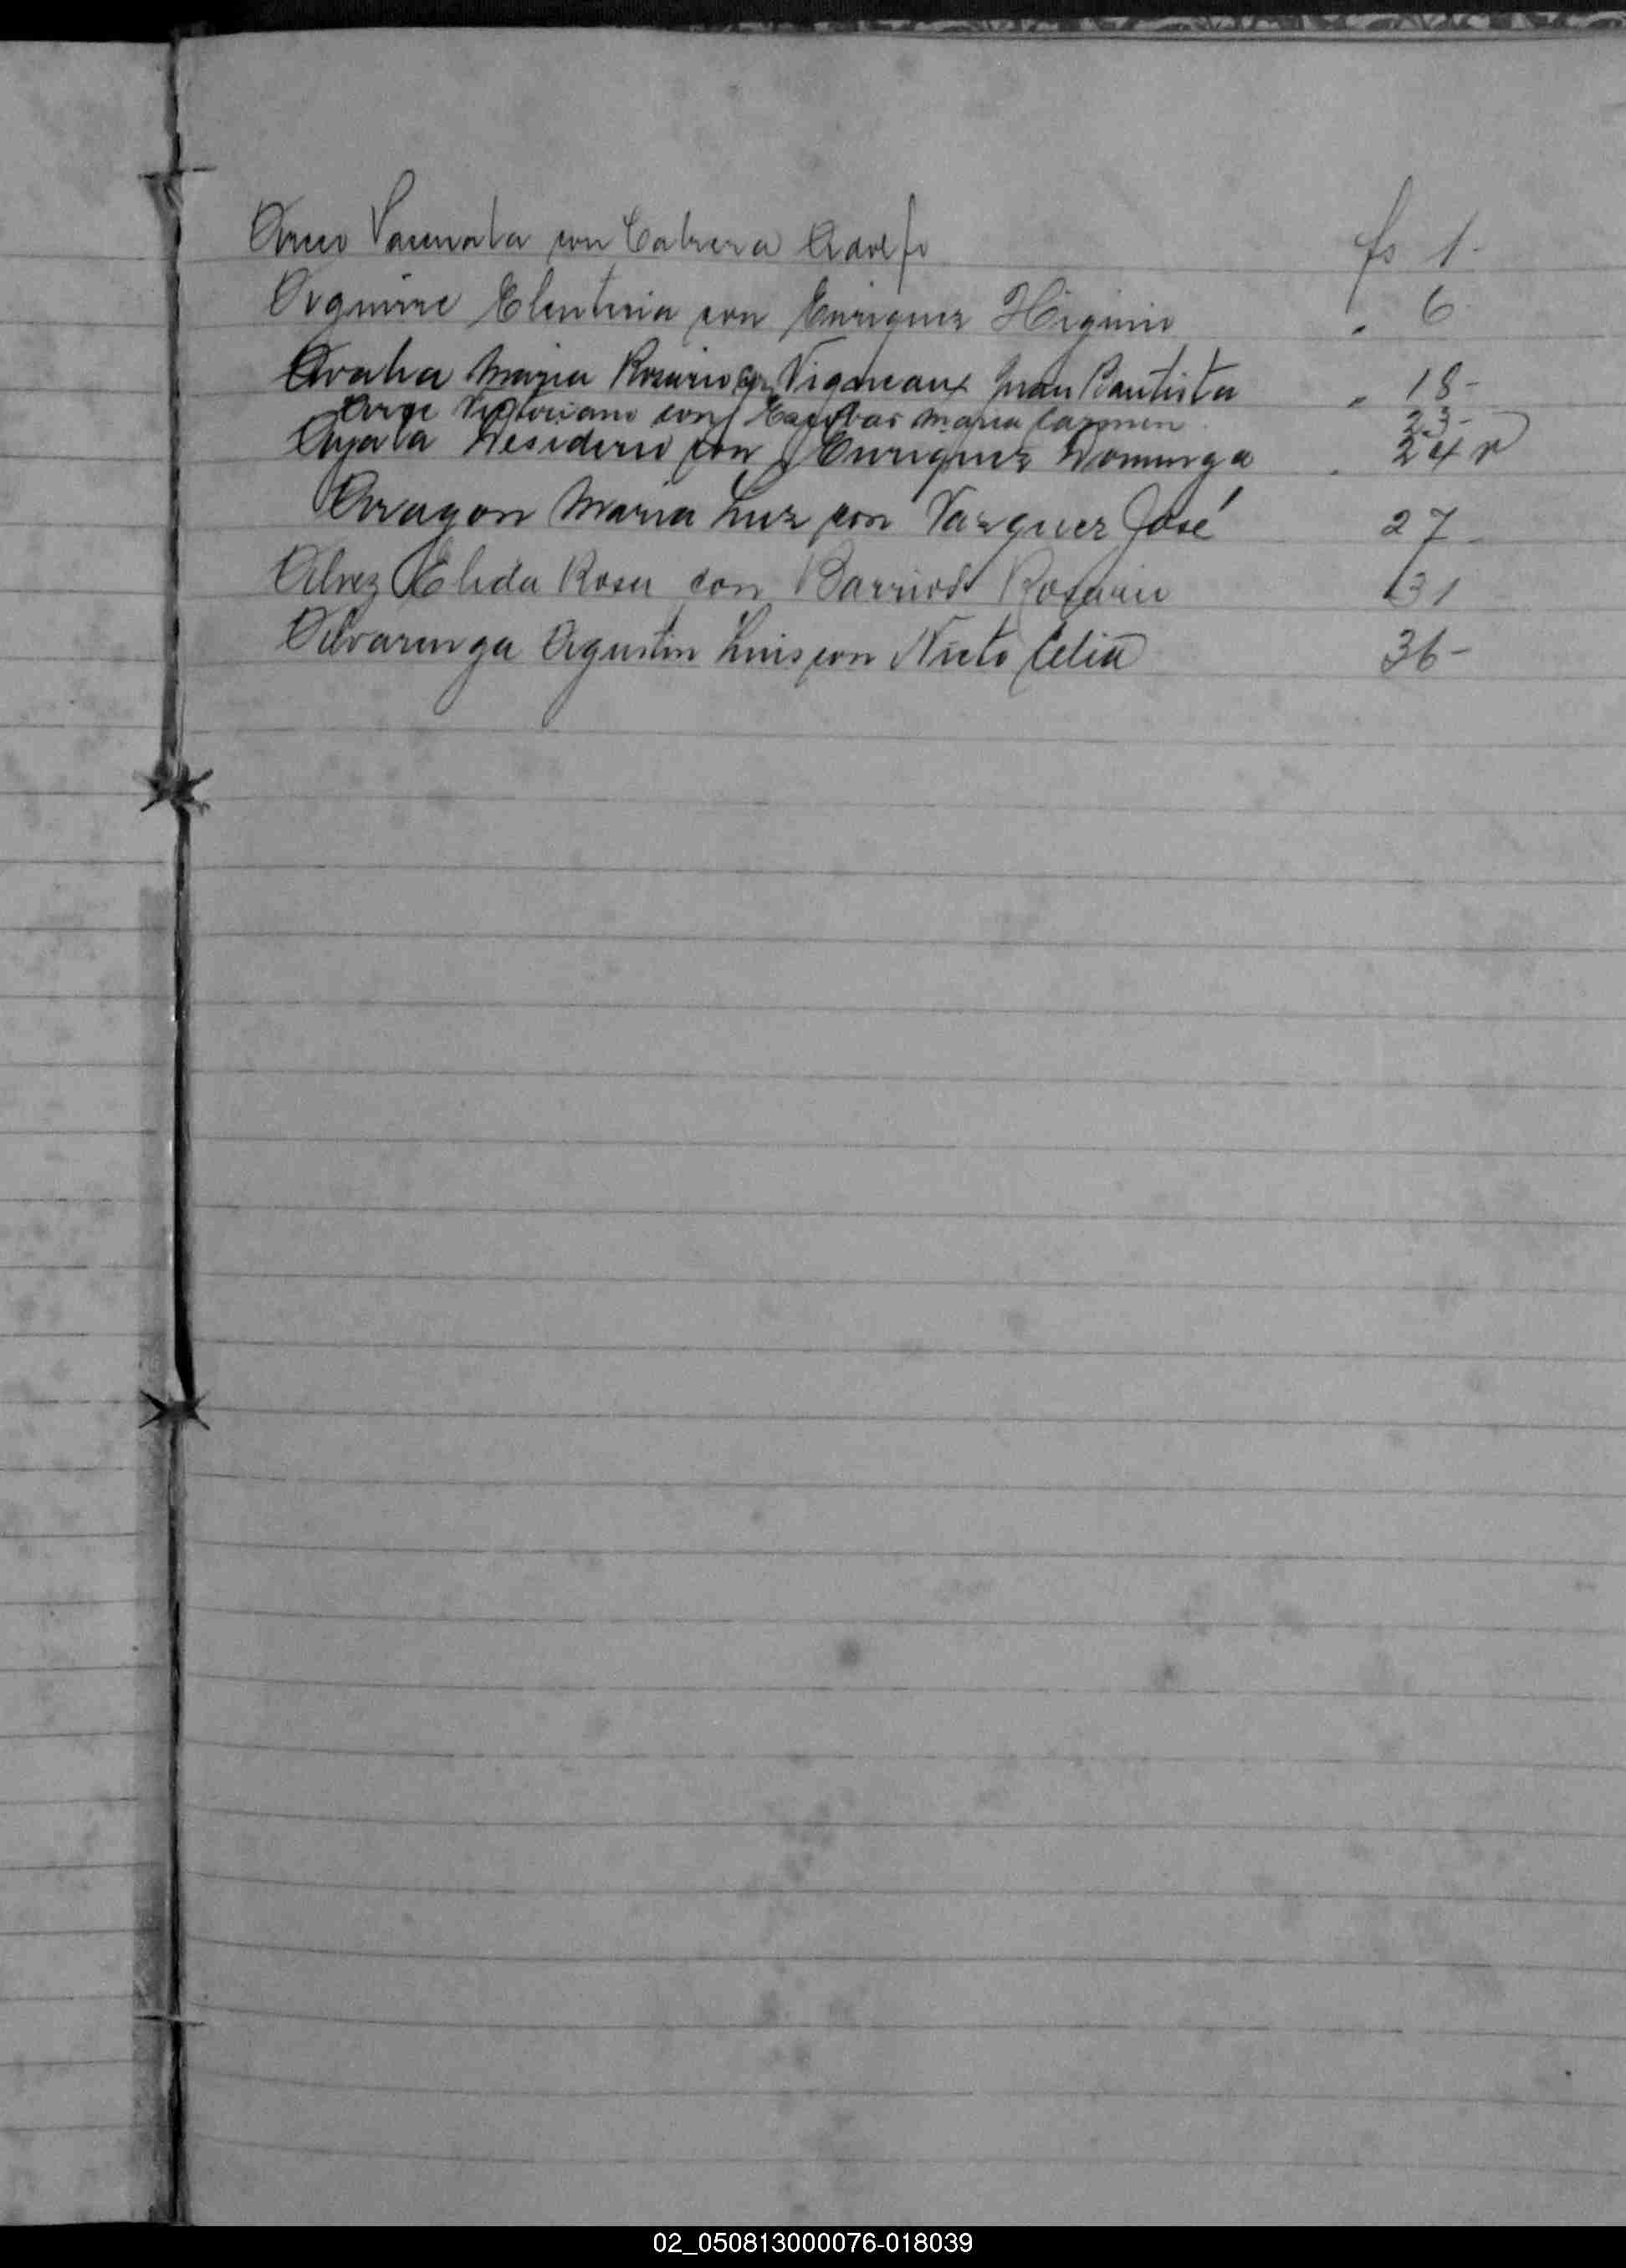 Arce Pacunata con Cabrera Adolfo fs 1-
Aguirre Eleuteria con Enriquez Higinio " 6
Avalia Maria Rosario con Vigneaux Juan Bautista " 18-
Arce Victoriano con Escobar Maria Carmen 23-
Ayala Desiderio con Enriquez Dominga " 24 v
Aragon Maria Luz con Vazquez José 27-
Alvez Elida Rosa con Barrios Rosario 31
Alvarenga Agustin Luis con Nieto Celia 36-
02_050813000076-018039